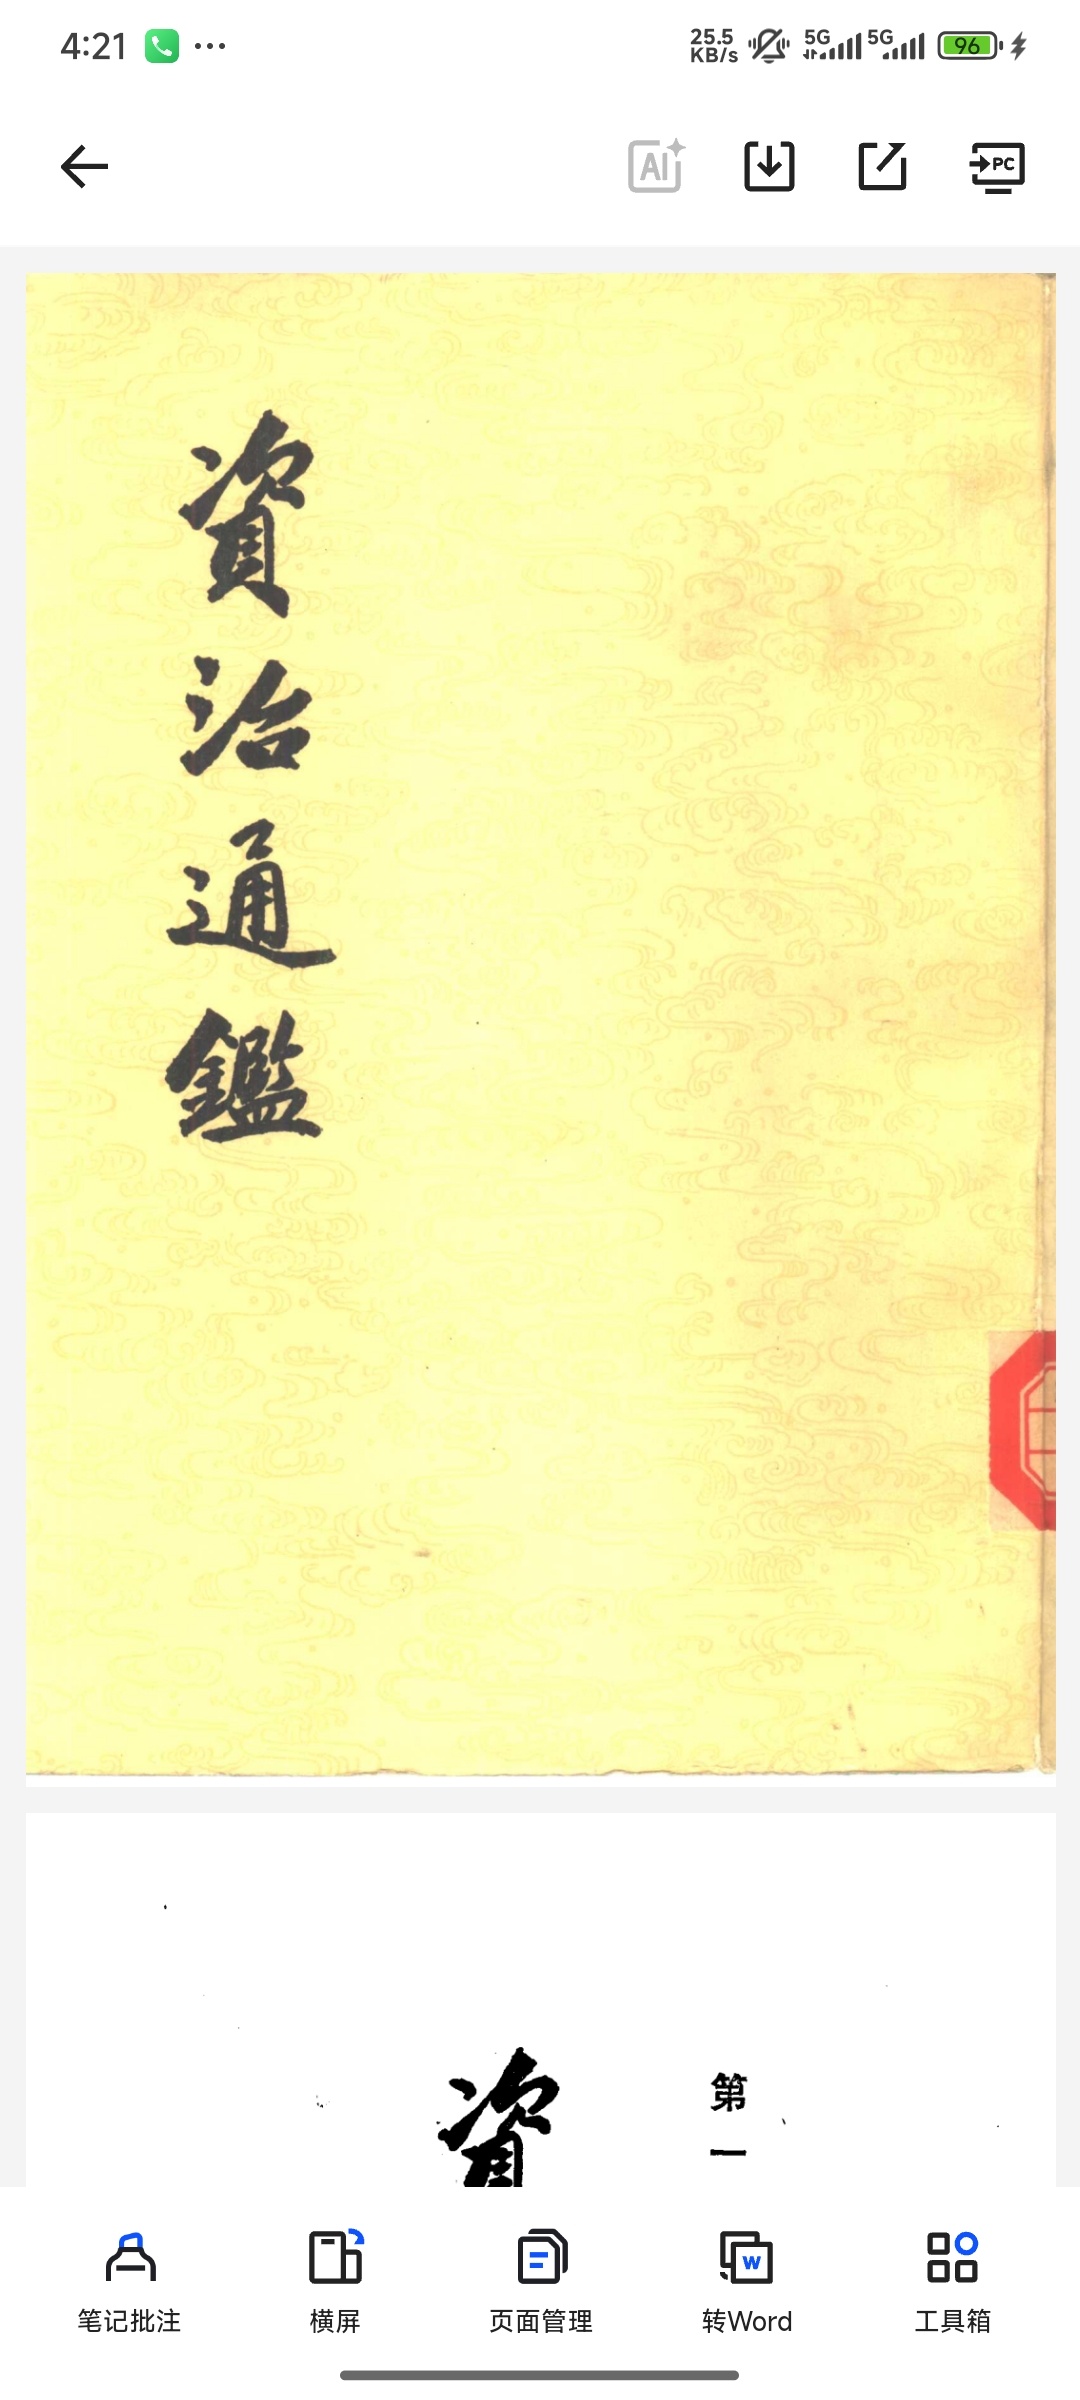 4:21
25.5 KB/s
5G
5G
96
AI
PC
資治通鑑
第一
資
W
笔记批注
横屏
页面管理
转Word
工具箱